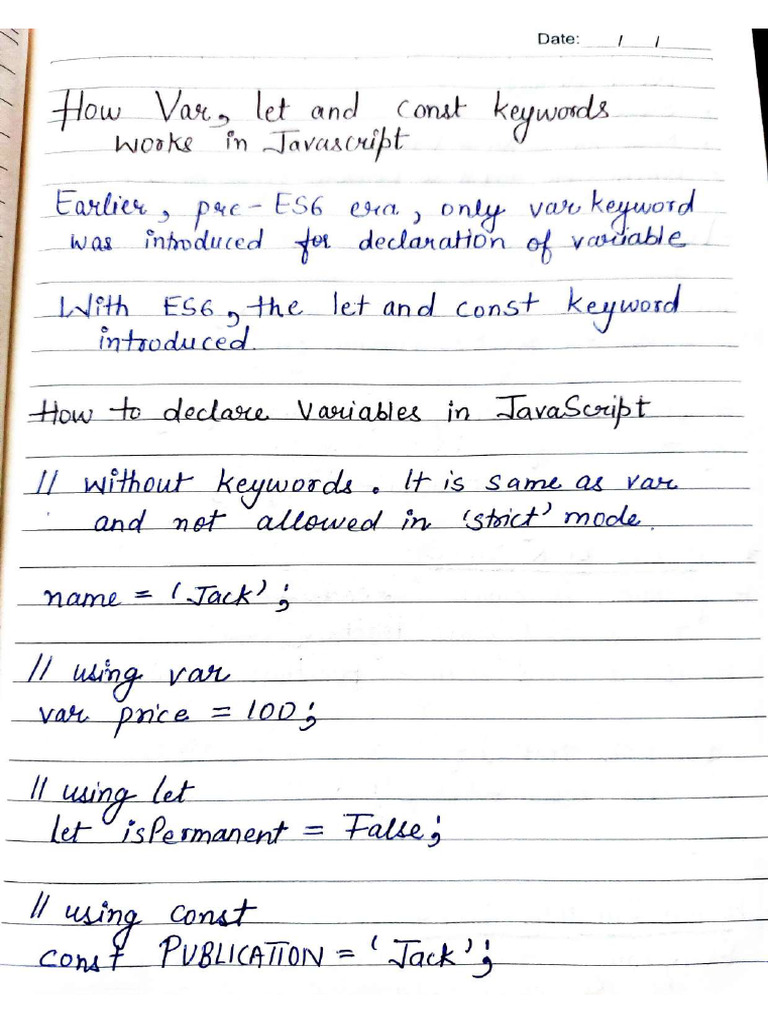 Date: / /
How Var, let and const keywords
works in Javascript
Earlier, pre-ES6 era, only var keyword
was introduced for declaration of variable
With ES6, the let and const keyword
introduced.
How to declare variables in JavaScript
// without keywords. It is same as var
and not allowed in 'strict' mode.
name = 'Jack';
// using var
var price = 100;
// using let
let isPermanent = False;
// using const
const PUBLICATION = 'Jack';